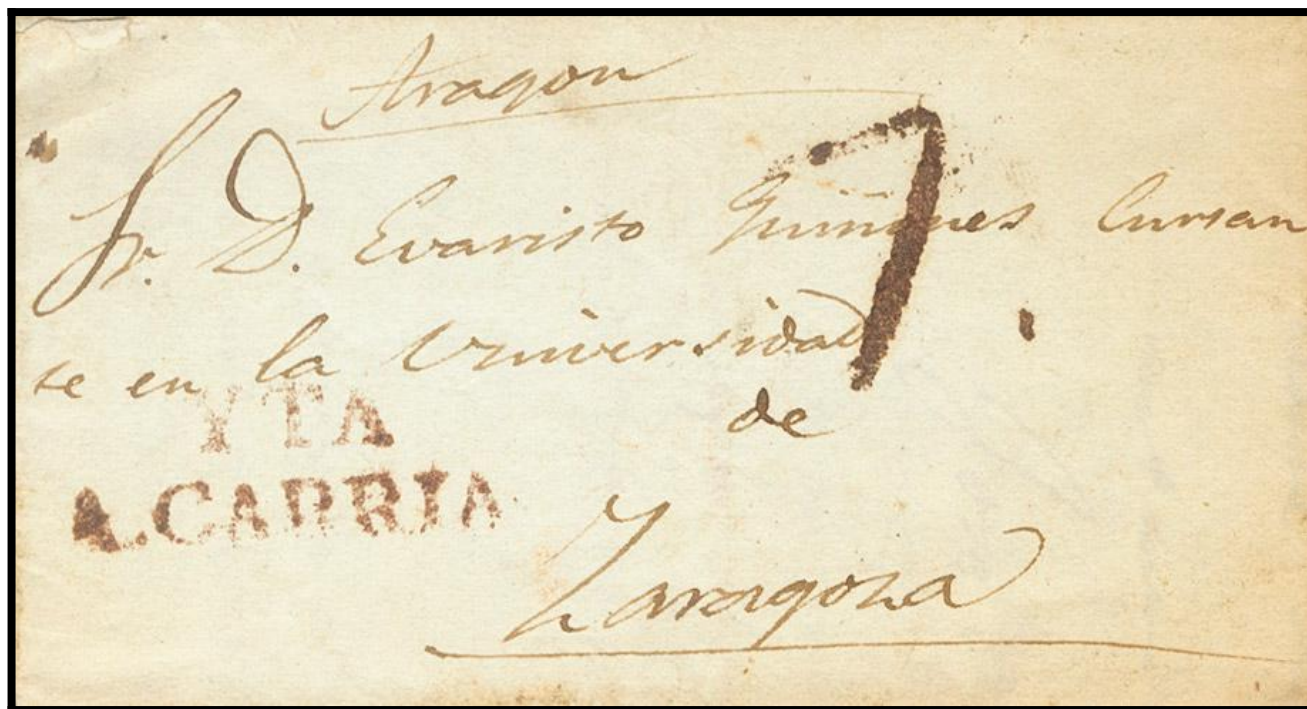 Aragon
Sr. D. Evaristo Quiñones Cursan
te en la Universidad
7.
de
YTA
A.CARRIA
Zaragoza